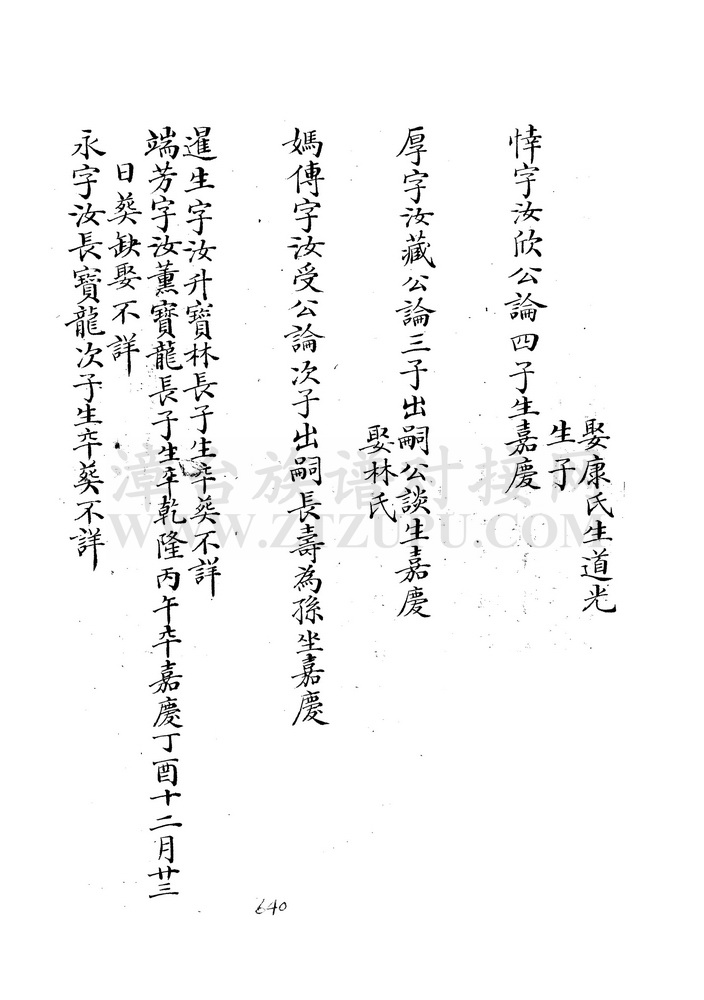 娶康氏生道光
生子
悻字汝欣公論四子生嘉慶
厚字汝藏公論三子出嗣公談生嘉慶
娶林氏
媽傳字汝受公論次子出嗣長壽為孫坐嘉慶
暹生字汝升寶林長子生卒葬不詳
端芳字汝薰寶龍長子生卒乾隆丙午卒嘉慶丁酉十二月廿三
日葬缺娶不詳
永字汝長寶龍次子生卒葬不詳
640
漳台族谱对接网
WWW.ZTZUPU.COM